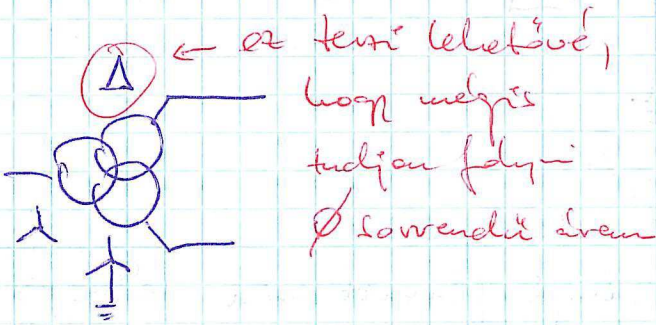 ← ez teszi lehetővé,
hogy mégis
tudjon folyni
∅ sorrendű áram